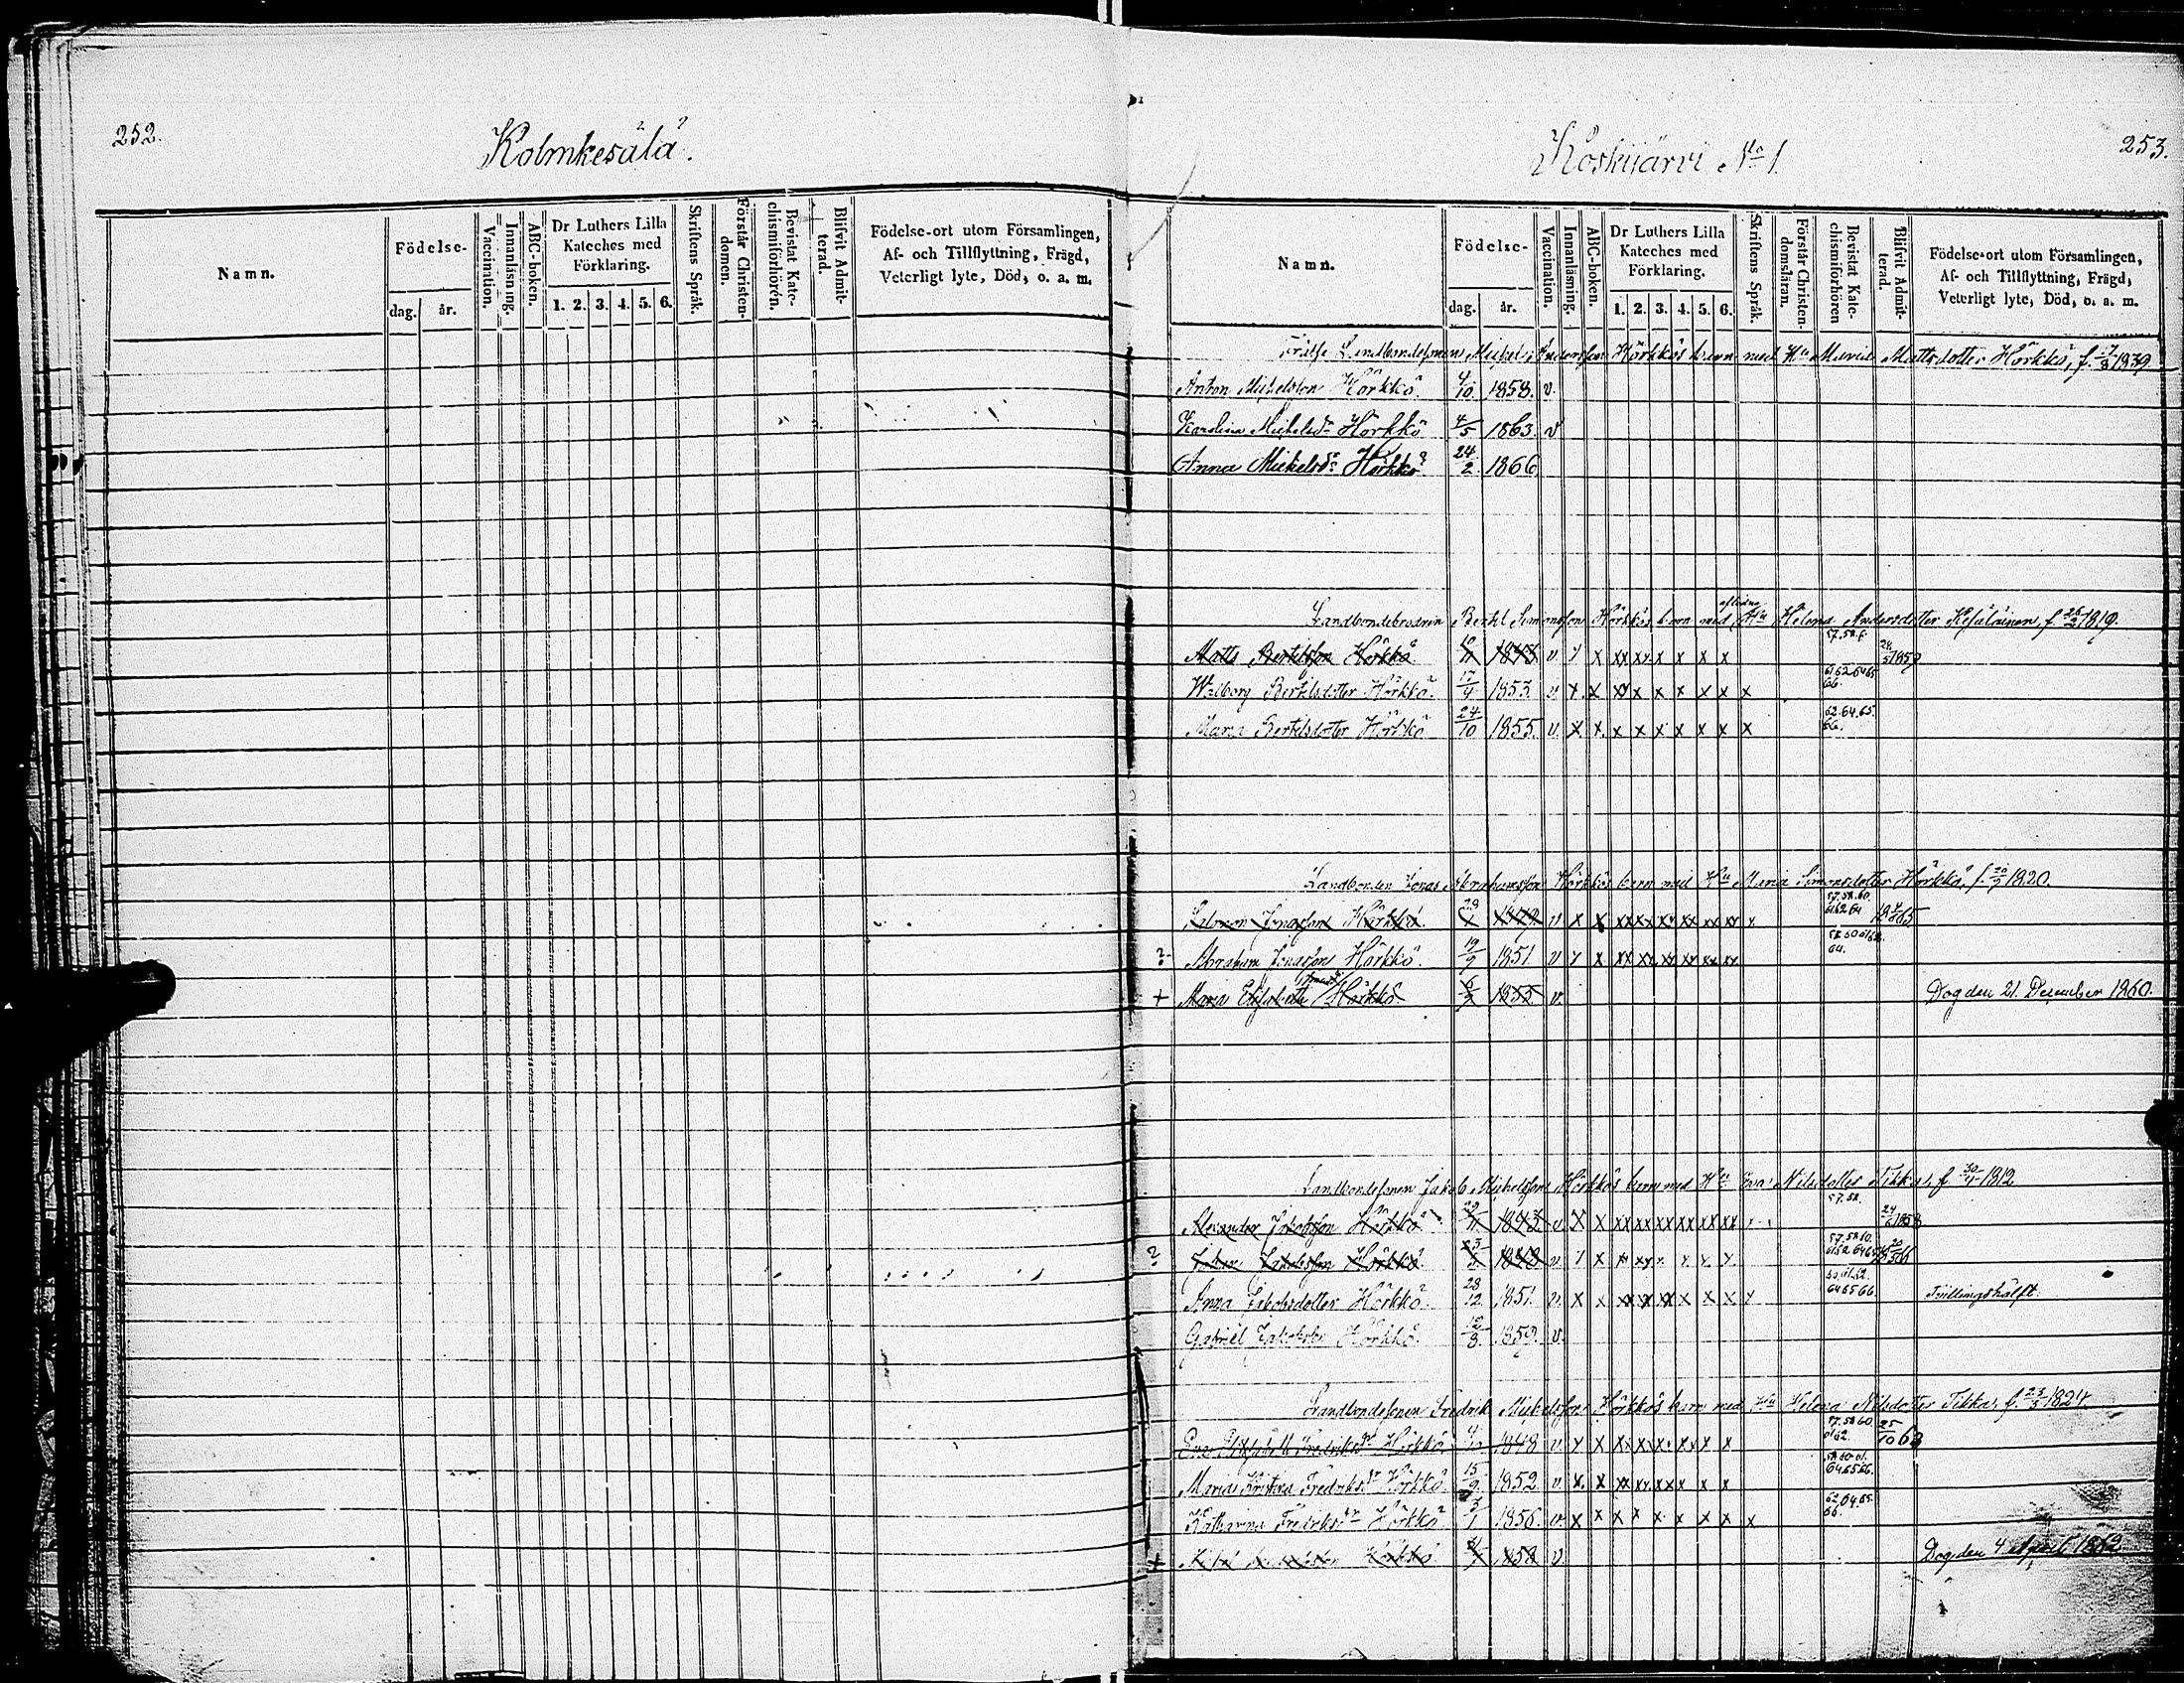 252.
Kolmkesälä.
Namn.
Födelse-
dag.
år.
Vaccination.
Innanläsning.
ABC-boken.
Dr Luthers Lilla
Kateches med
Förklaring.
1. 2. 3. 4. 5. 6.
Skriftens Språk.
Förstår Christen-
domen.
Bevistat Kate-
chismiförhören.
Blifvit Admit-
terad.
Födelse-ort utom Församlingen,
Af- och Tillflyttning, Frägd,
Veterligt lyte, Död, o. a. m.
253.
Koskijärvi No 1.
Namn.
Födelse-
dag.
år.
Vaccination.
Innanläsning.
ABC-boken.
Dr Luthers Lilla
Kateches med
Förklaring.
1. 2. 3. 4. 5. 6.
Skriftens Språk.
Förstår Christen-
domsläran.
Bevistat Kate-
chismiförhören
Blifvit Admit-
terad.
Födelse-ort utom Församlingen,
Af- och Tillflyttning, Frägd,
Veterligt lyte, Död, o. a. m.
Landbondesonen Mickel Andersson Hörkkös barn med Hu Maria Mattsdotter Hörkkö, f. 1839
Anton Mickelsson Hörkkö. 4/10 1858. v.
Karolina Mickelsdr Hörkkö 4/5 1863. v
Anna Mickelsdr Hörkkö 24/2 1866
Landbondebrodren Bertil Simonsson Hörkkös barn med aflidne Hu Helena Andersdotter Kesäläinen, f. 26/2 1819.
Matts Bertilsson Hörkkö 10/11 1843 v x x xx xx x x x x 57.58.6. 24/5 1859
Walborg Bertilsdotter Hörkkö. 17/4 1853. v x. x xx x x x x x x 61 62 64 65 66.
Maria Bertilsdotter Hörkkö 24/10 1855. v. x x. x x x x x x x 62.64.65. 66.
Landbonden Jonas Abrahamsson Hörkkös barn med Hu Maria Simonsdotter Hörkkö, f. 20/9 1820.
Salomon Jonasson Hörkkö. 1849 v x x xx xx xx xx xx xx x 57.58.60. 61 62 64
Abraham Jonasson Hörkkö. 19/9 1851 v x x xx xx xx xx xx xx 64.
+ Maria Elisabeth Jonasdr Hörkkö 1855 v. Dog den 21. December 1860.
Landbondesonen Jakob Mickelsson Hörkkös barn med Hu Eva Nilsdotter Tikka, f 30/11 1812
Alexander Jakobsson Hörkkö 1843 v x x xx xx xx xx xx xx 57.58. 24/6 1858
? Johan Jakobsson Hörkkö 1848 v 57.58.60.
Anna Jakobsdotter Hörkkö. 28/12 1851. v. x x xx xx xx x x x x 60.61.62. 64 65 66. Tvillingshälft.
Gabriel Jakobsson Hörkkö. 12/8. 1859. v.
Landbondesonen Fredrik Mickelsson Hörkkös barn med Hu Helena Nilsdotter Tikka, f. 23/5 1824.
Eva Elisabeth Fredriksdr Hörkkö 1848 v x x xx xx xx x x 57.58 60. 61 62. 25/10 63
Maria Kristina Fredriksdr Hörkkö 15/9. 1852. v x. x xx xx xx x x x 58 60 61. 64 65 66.
Katharina Fredriksdr Hörkkö 3/1 1856. v. x x x x x x x x x 62.64.65. 66.
+ Hörkkö 1858 v Dog den 4 April 1862